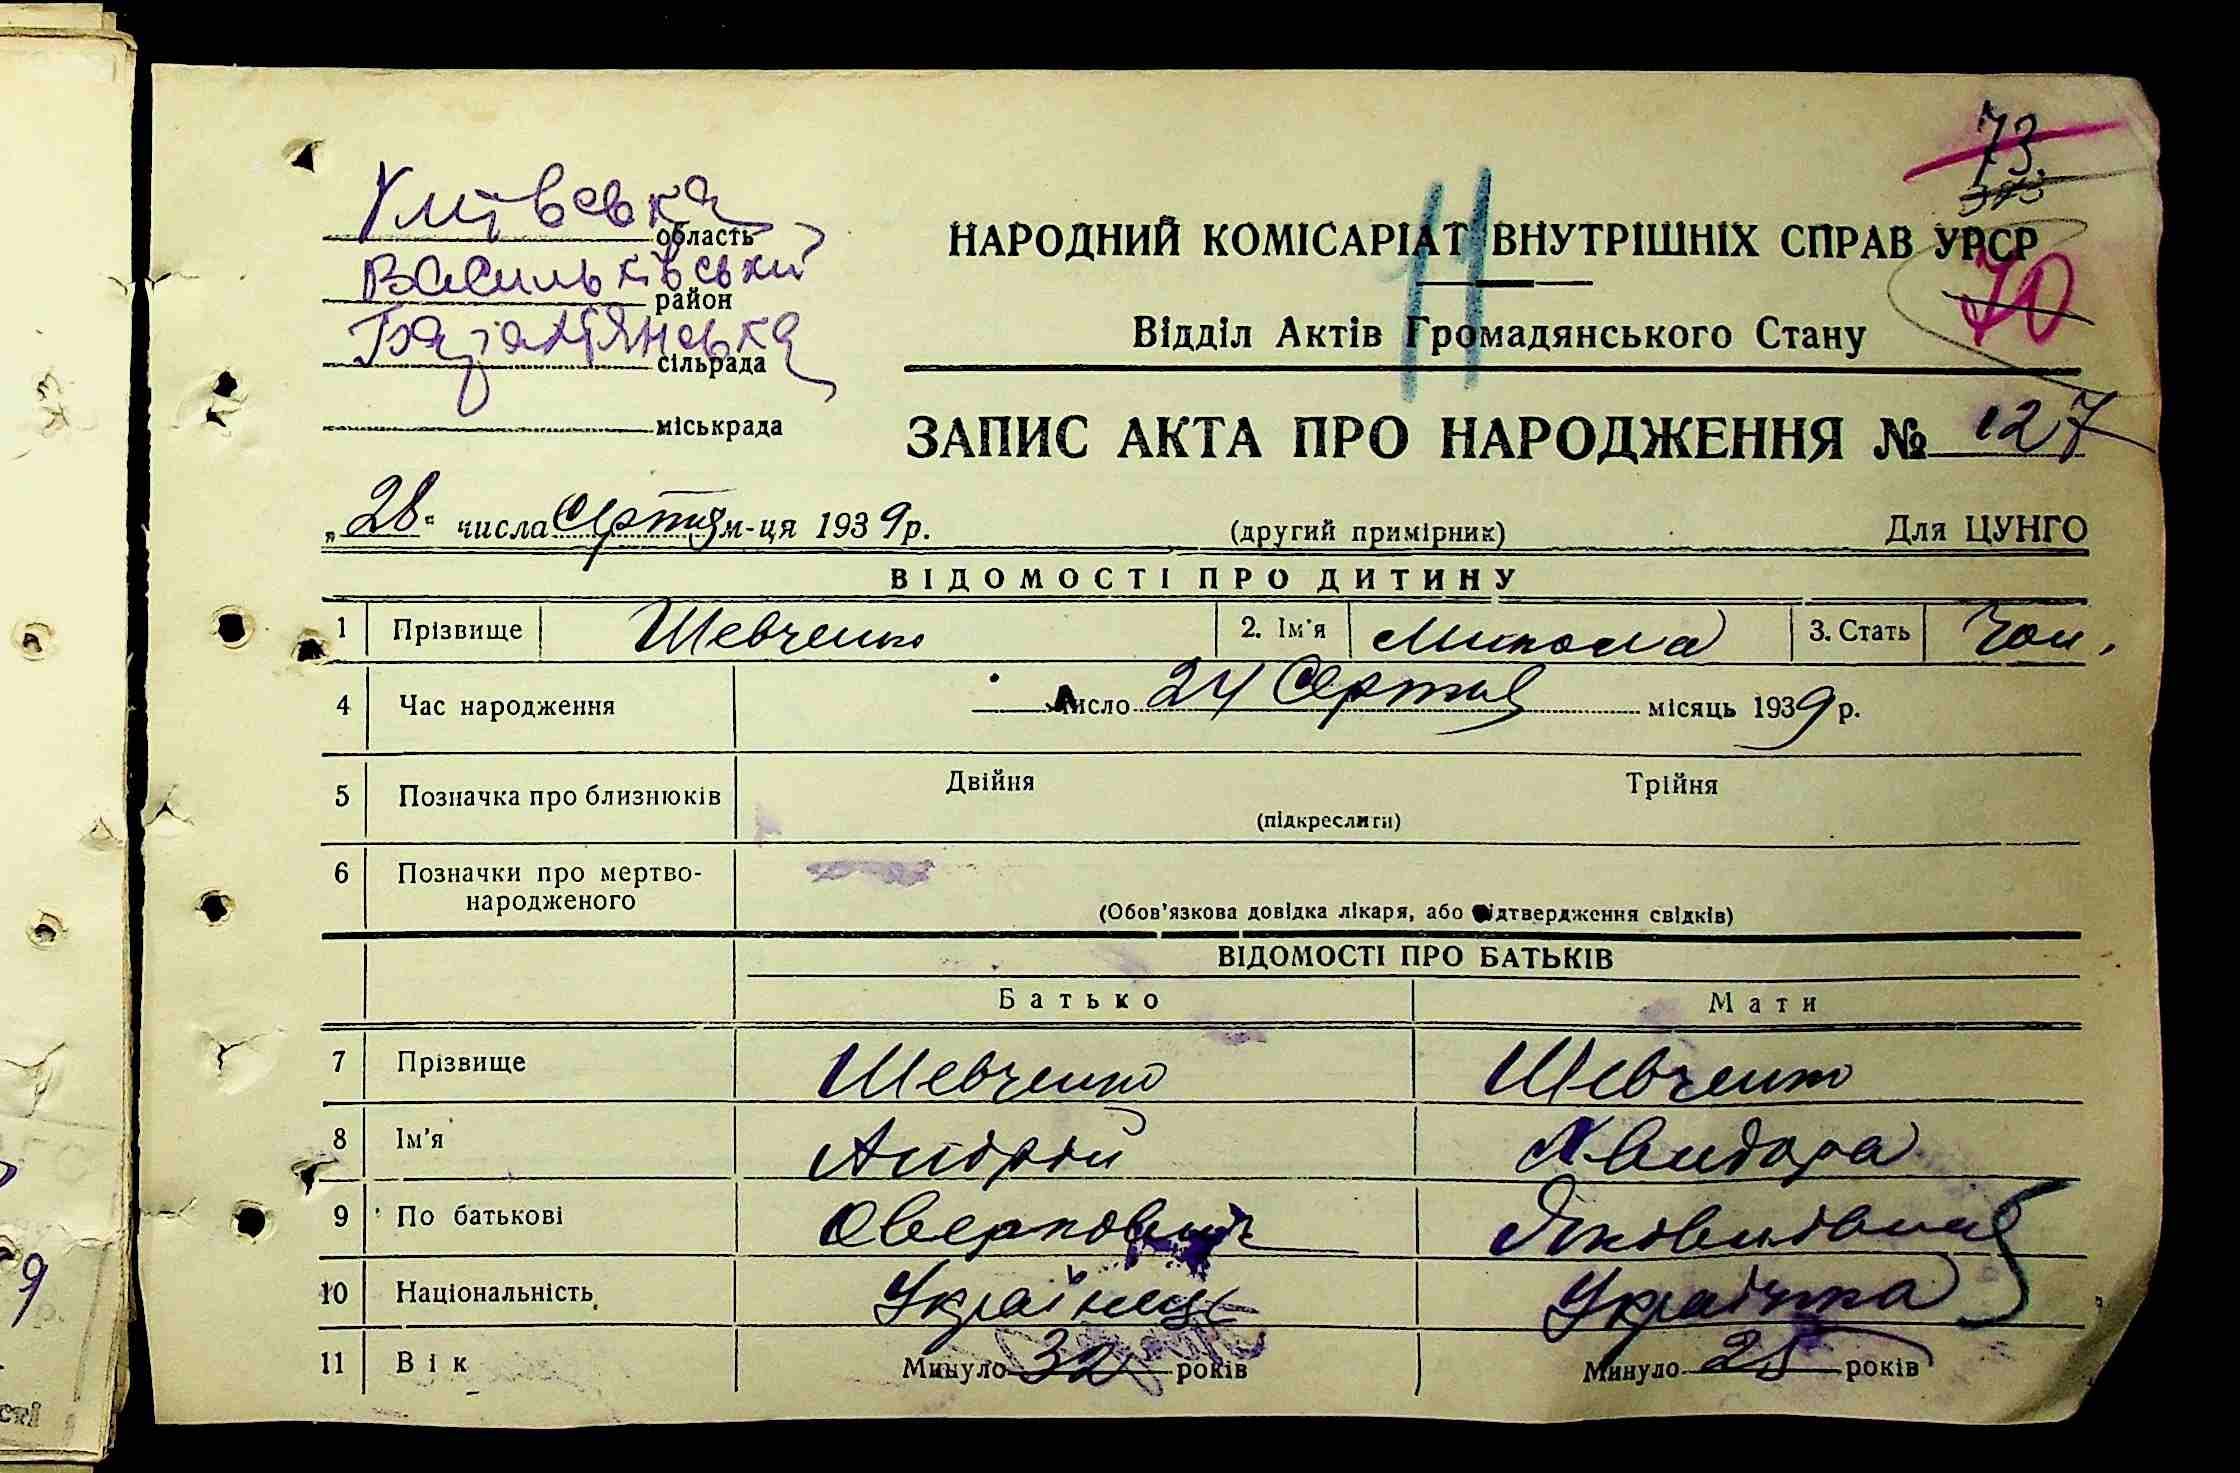 73
НАРОДНИЙ КОМІСАРІАТ ВНУТРІШНІХ СПРАВ УРСР
область
Васильківський
район
сільрада
міськрада
11
70
Відділ Актів Громадянського Стану
ЗАПИС АКТА ПРО НАРОДЖЕННЯ № 127
„28“ числа Серпня м-ця 1939 р.
(другий примірник)
Для ЦУНГО
ВІДОМОСТІ ПРО ДИТИНУ
1 Прізвище Шевченко 2. Ім'я Микола 3. Стать Чол.
4 Час народження число 24 Серпня місяць 1939 р.
5 Позначка про близнюків Двійня Трійня
(підкреслити)
6 Позначки про мертво-
народженого
(Обов'язкова довідка лікаря, або підтвердження свідків)
ВІДОМОСТІ ПРО БАТЬКІВ
Батько Мати
7 Прізвище Шевченко Шевченко
8 Ім'я Андрій
9 По батькові Оверкович
10 Національність Українець Українка
11 Вік Минуло 32 років Минуло 25 років